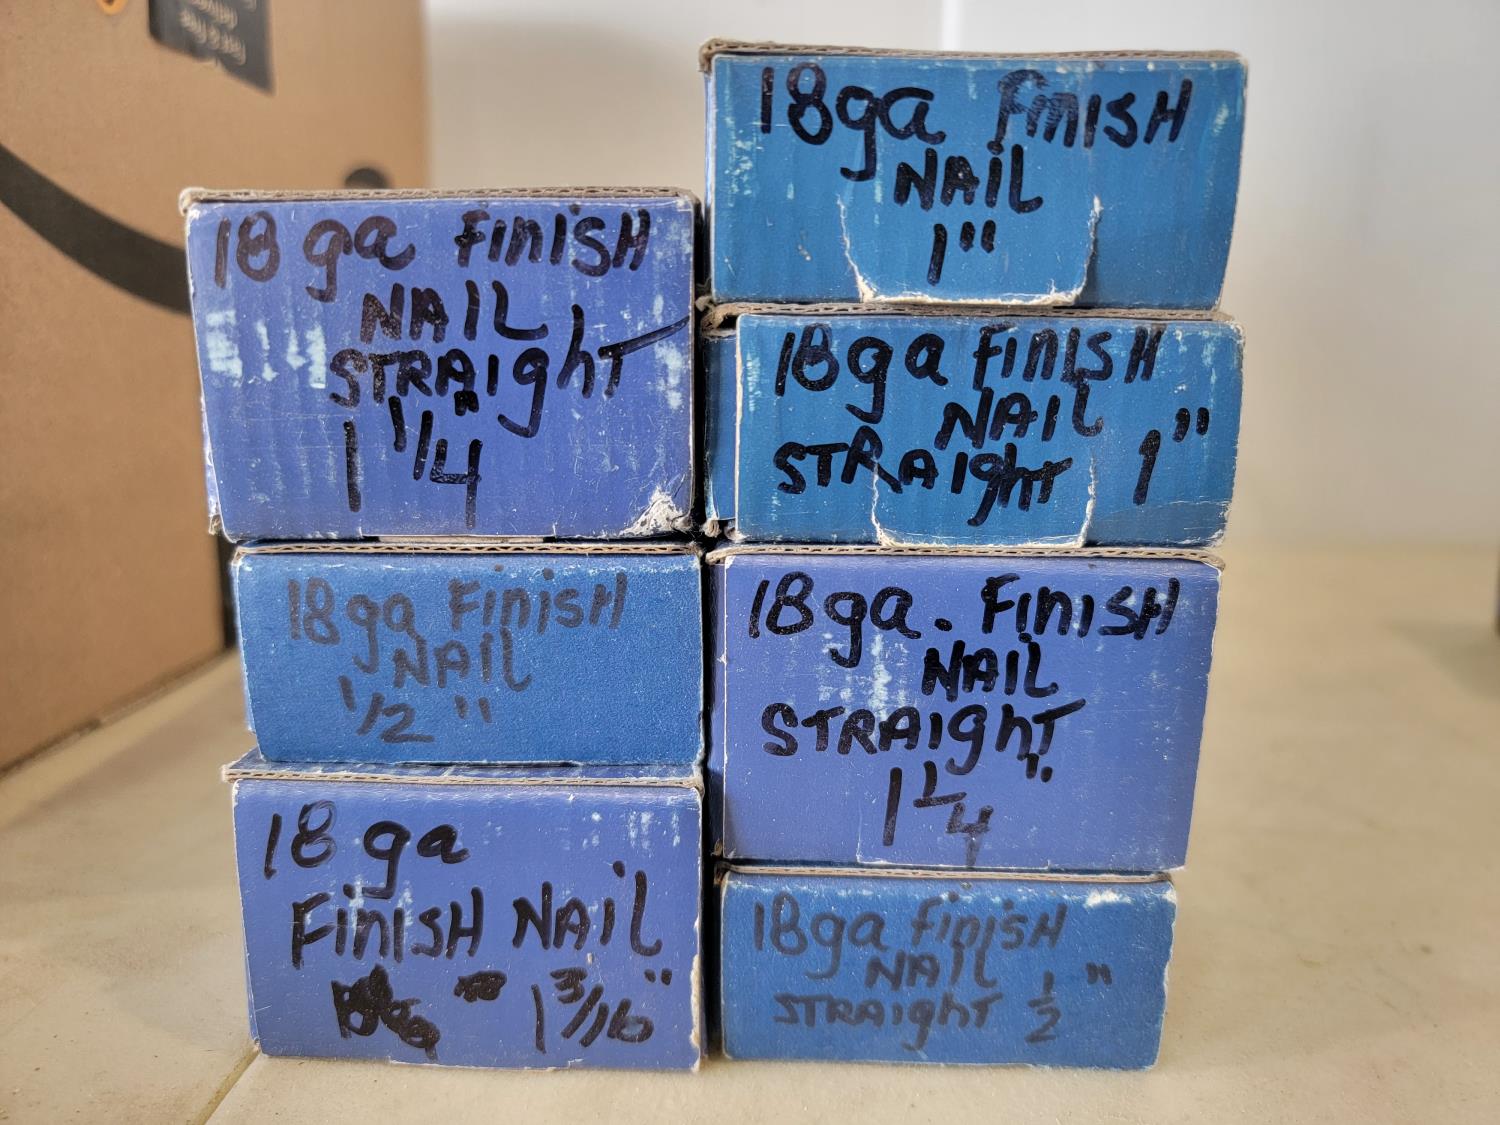 18ga Finish
NAil
1"
18 ga Finish
NAIL
STRAight
1 1/4"
18ga Finish
NAIL
STRAight 1"
18ga Finish
NAil
1/2"
18ga. Finish
NAil
STRAight
1 1/4"
18 ga
Finish NAil
1 3/16"
18ga Finish
NAIL
STRAight 1/2"